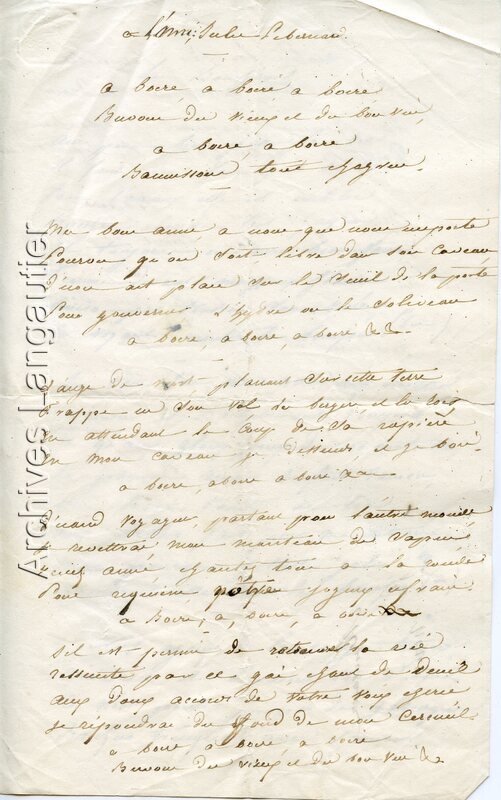 a l'ami Jules Lebernard

a boire a boire a boire
Buvons du vieux et du bon vin
a boire, a boire
Bannissons tout chagrin.

Mes bons amis, a nous que nous importe
Pourvu qu'on soit libre dans son caveau
Qu'on ait placé sur le seuil de la porte
Pour gouverner l'hydre ou le soliveau
a boire, a boire, a boire &&.

L'ange de mort planant sur cette terre
frappe en son vol le berger et le roi
En attendant le coup de sa rapière
En mon caveau je descends, et je bois.
a boire, a boire a boire &&.

Quand voyageur, partant pour l'autre monde
Je revettrai mon manteau de sapin
Vieux amis chantez tous a la ronde
Pour requiem notre joyeux refrain.
a Boire, a, boire, a boire

s'il est permis de retrouver la vie
ressuscité par ce gai chant de Deuil
aux doux accords de votre voix chérie
je répondrai du fond de mon cercueil.
a boire, a boire, a boire
Buvons du vieux et du bon vin &

Archives Langautier